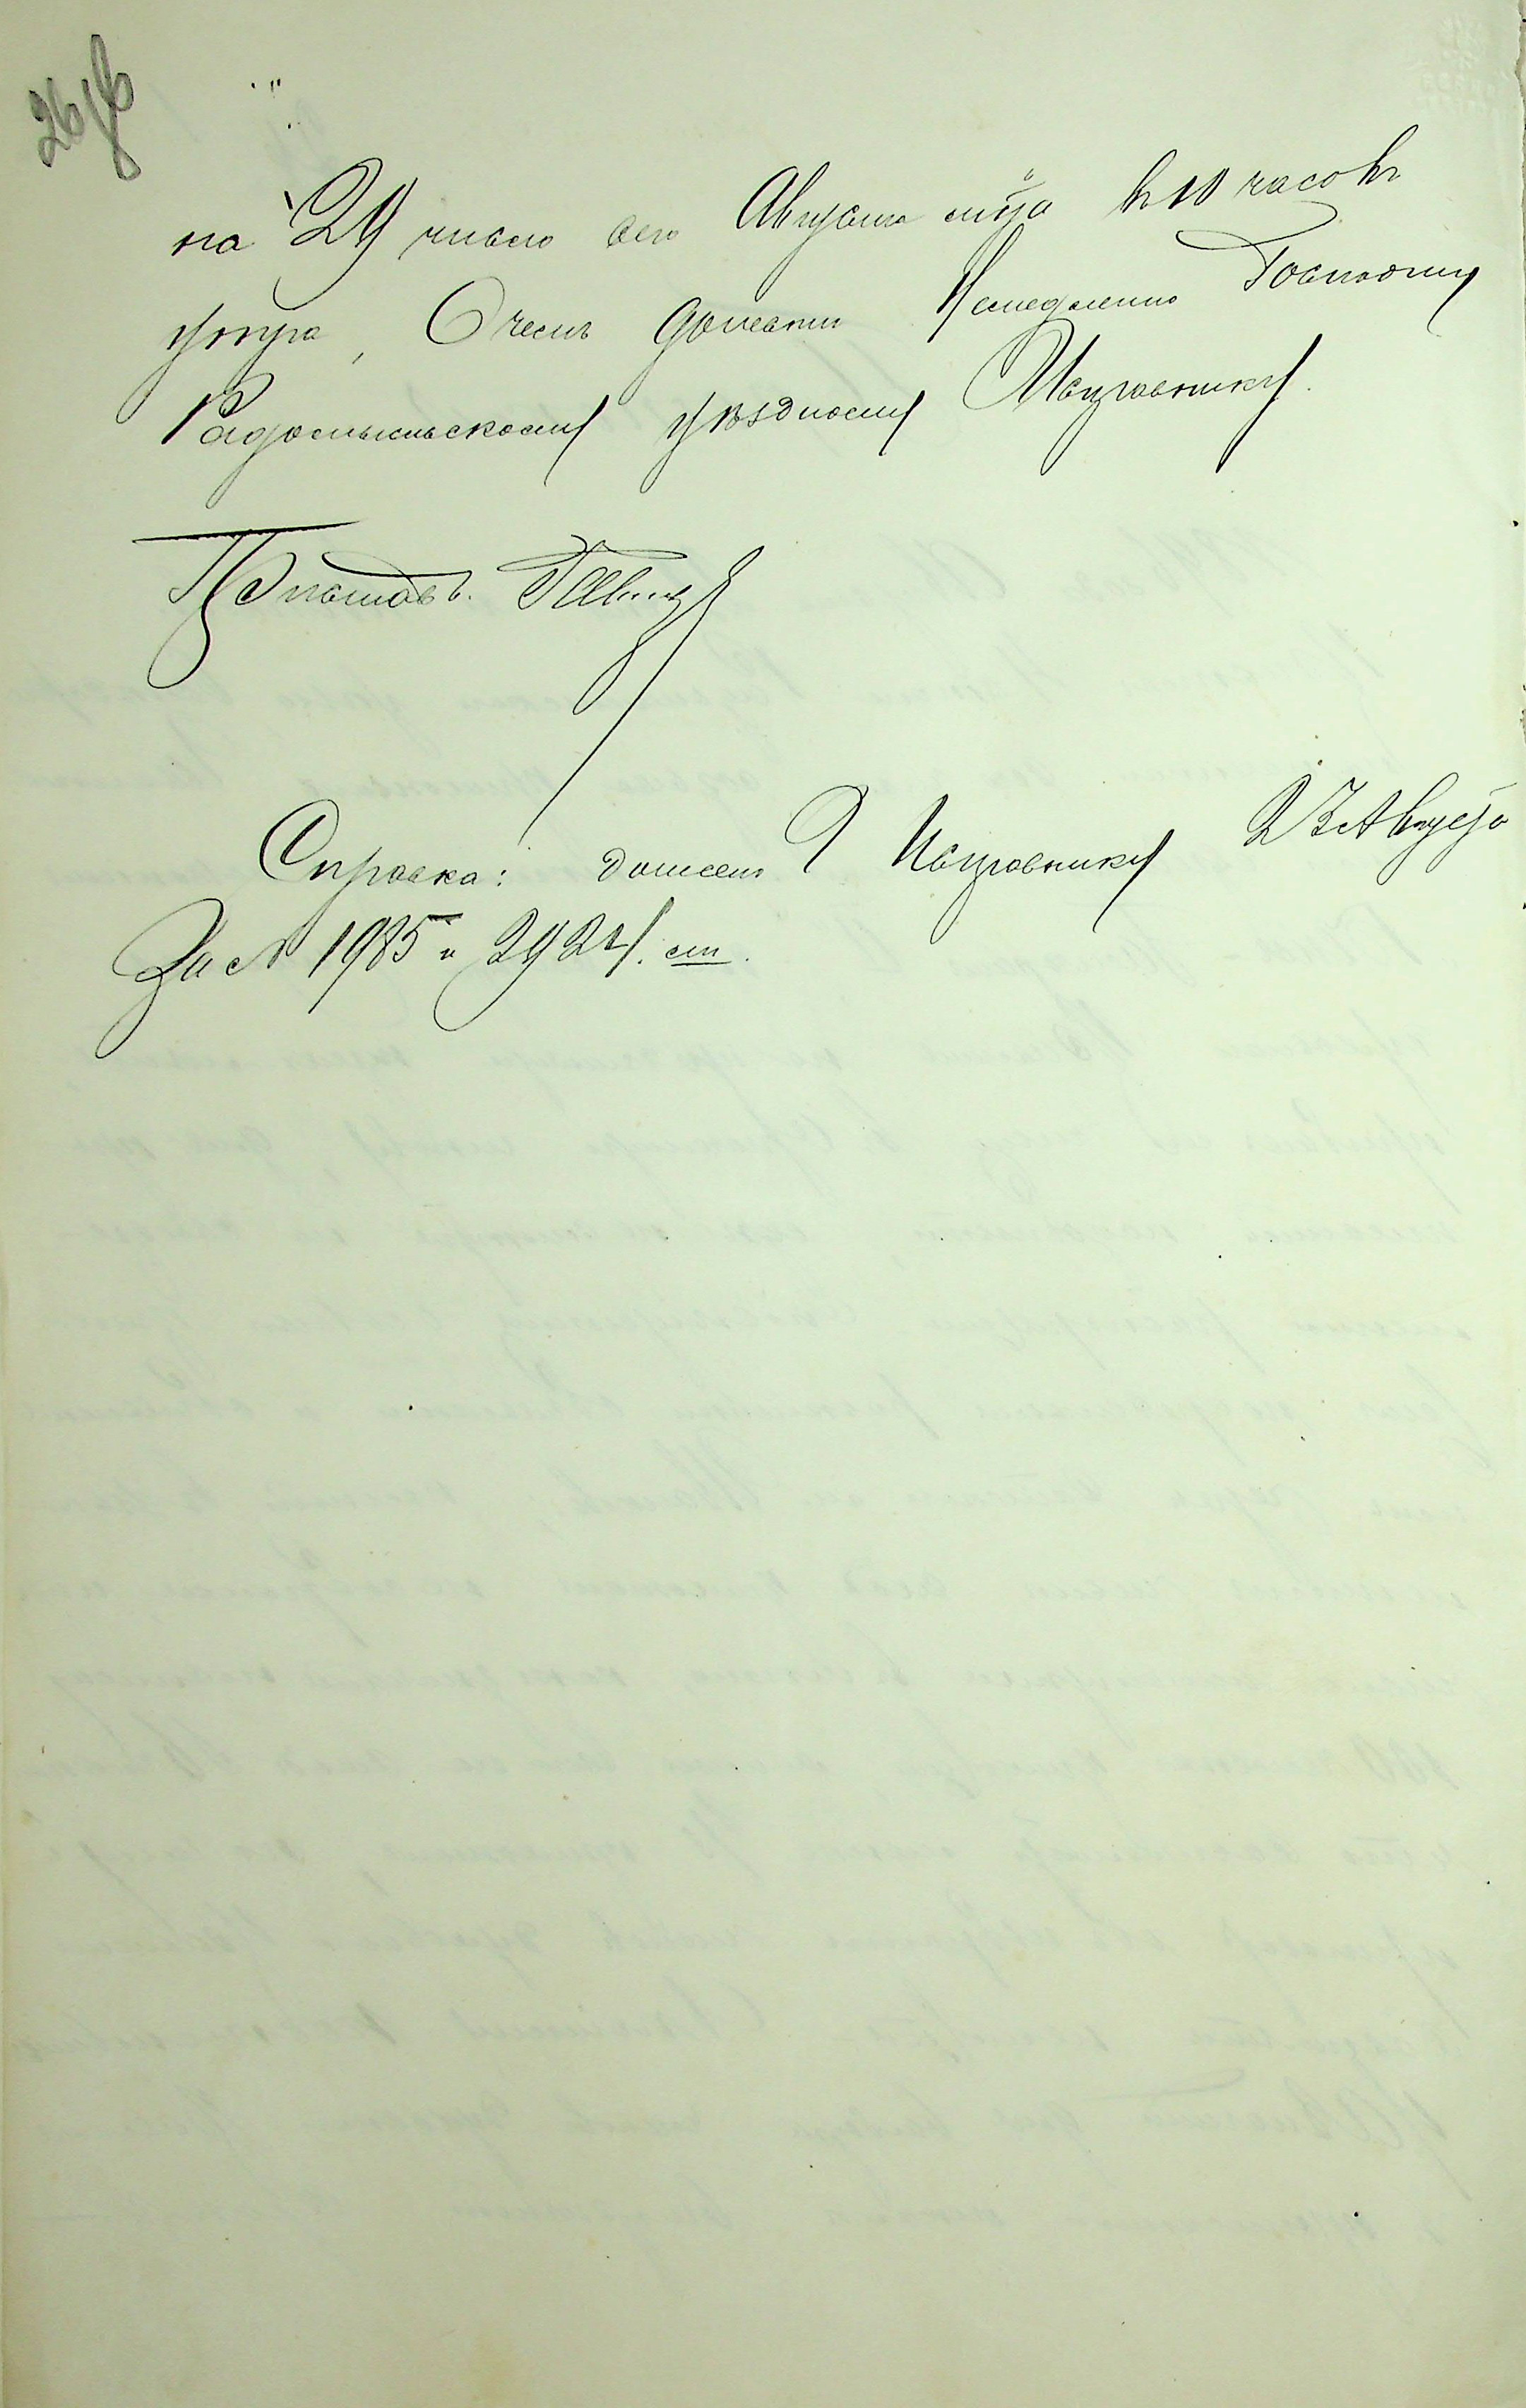 26 об
на 29 число сего Августа м-ца в 10 часовъ
утра, О чемъ донести Немедленно Господину
Радомысльскому уѣздному Исправнику.
Приставъ
Справка: донесено Г Исправнику 23 Августа
За № 1985 и 2924. ст.